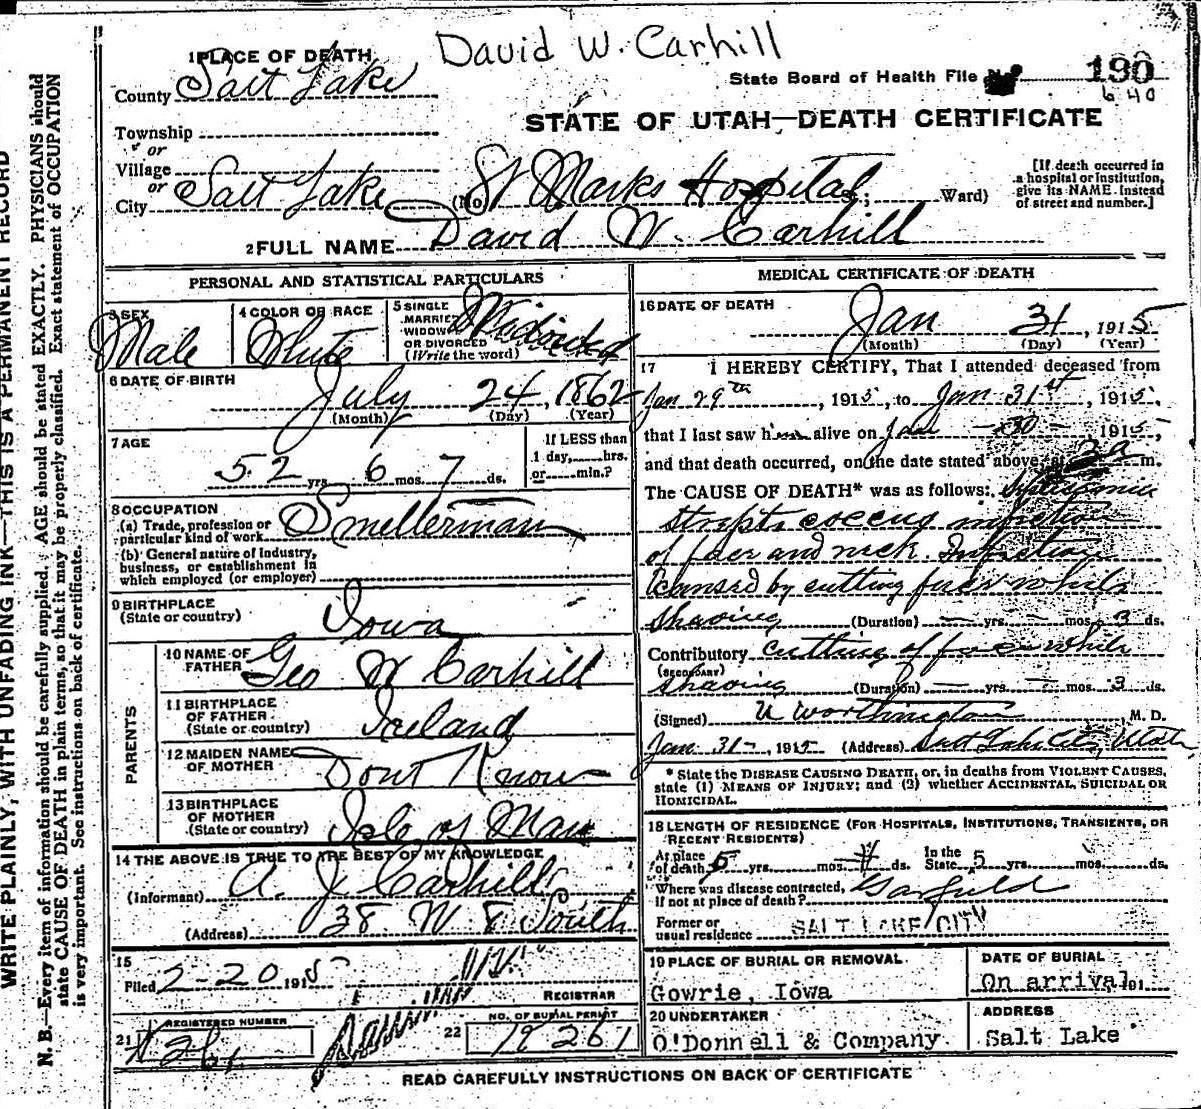 David W. Carhill
1 PLACE OF DEATH
County Salt Lake
State Board of Health File No. 190
640
STATE OF UTAH—DEATH CERTIFICATE
Township
or
Village
or
City Salt Lake (No. St Marks Hospital ; Ward)
[If death occurred in a hospital or institution, give its NAME instead of street and number.]
2 FULL NAME David W. Carhill
PERSONAL AND STATISTICAL PARTICULARS
3 SEX Male
4 COLOR OR RACE White
5 SINGLE MARRIED WIDOWED OR DIVORCED (Write the word) Widowed
6 DATE OF BIRTH July 24, 1862
(Month) (Day) (Year)
7 AGE 52 yrs. 6 mos. 7 ds.
If LESS than 1 day, hrs. or min.?
8 OCCUPATION
(a) Trade, profession or particular kind of work Smelterman
(b) General nature of industry, business, or establishment in which employed (or employer)
9 BIRTHPLACE (State or country) Iowa
PARENTS
10 NAME OF FATHER Geo W Carhill
11 BIRTHPLACE OF FATHER (State or country) Ireland
12 MAIDEN NAME OF MOTHER Dont Know
13 BIRTHPLACE OF MOTHER (State or country) Isle of Man
14 THE ABOVE IS TRUE TO THE BEST OF MY KNOWLEDGE
(Informant) A. J. Carhill
(Address) 38 W 8 South
15
Filed 2-20 1915
REGISTRAR
REGISTERED NUMBER
21 261
22 NO. OF BURIAL PERMIT
19261
MEDICAL CERTIFICATE OF DEATH
16 DATE OF DEATH
Jan 31, 1915
(Month) (Day) (Year)
17 I HEREBY CERTIFY, That I attended deceased from
Jan 29th, 1915, to Jan 31st, 1915,
that I last saw him alive on Jan 30 1915,
and that death occurred, on the date stated above, at 3a m.
The CAUSE OF DEATH* was as follows: Septicemia
streptococcus infection
of face and neck. Infection
caused by cutting face while
shaving (Duration) — yrs. — mos. 3 ds.
Contributory cutting of face while
(SECONDARY)
shaving (Duration) — yrs. — mos. 3 ds.
(Signed) U Worthington, M. D.
Jan 31-, 1915 (Address) Salt Lake City, Utah
* State the DISEASE CAUSING DEATH, or, in deaths from VIOLENT CAUSES, state (1) MEANS OF INJURY; and (2) whether ACCIDENTAL, SUICIDAL OR HOMICIDAL.
18 LENGTH OF RESIDENCE (FOR HOSPITALS, INSTITUTIONS, TRANSIENTS, OR RECENT RESIDENTS)
At place of death 5 yrs. mos. ds. In the State 5 yrs. mos. ds.
Where was disease contracted, if not at place of death? Garfield
Former or usual residence SALT LAKE CITY
19 PLACE OF BURIAL OR REMOVAL
Gowrie, Iowa
DATE OF BURIAL
On arrival 191
20 UNDERTAKER
O'Donnell & Company
ADDRESS
Salt Lake
READ CAREFULLY INSTRUCTIONS ON BACK OF CERTIFICATE
WRITE PLAINLY, WITH UNFADING INK—THIS IS A PERMANENT RECORD
N. B.—Every item of information should be carefully supplied. AGE should be stated EXACTLY. PHYSICIANS should
state CAUSE OF DEATH in plain terms, so that it may be properly classified. Exact statement of OCCUPATION
is very important. See instructions on back of certificate.